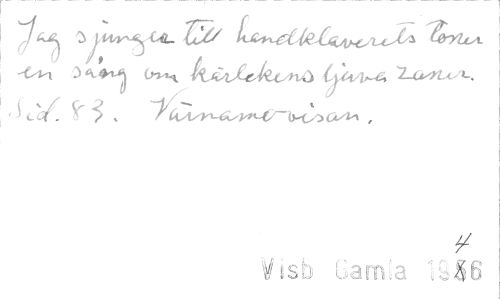 Jag sjunger till handklaverets toner
en sång om kärlekens ljuva zoner.
Sid. 83. Värnamo-visan.
4
Visb Gamla 1966